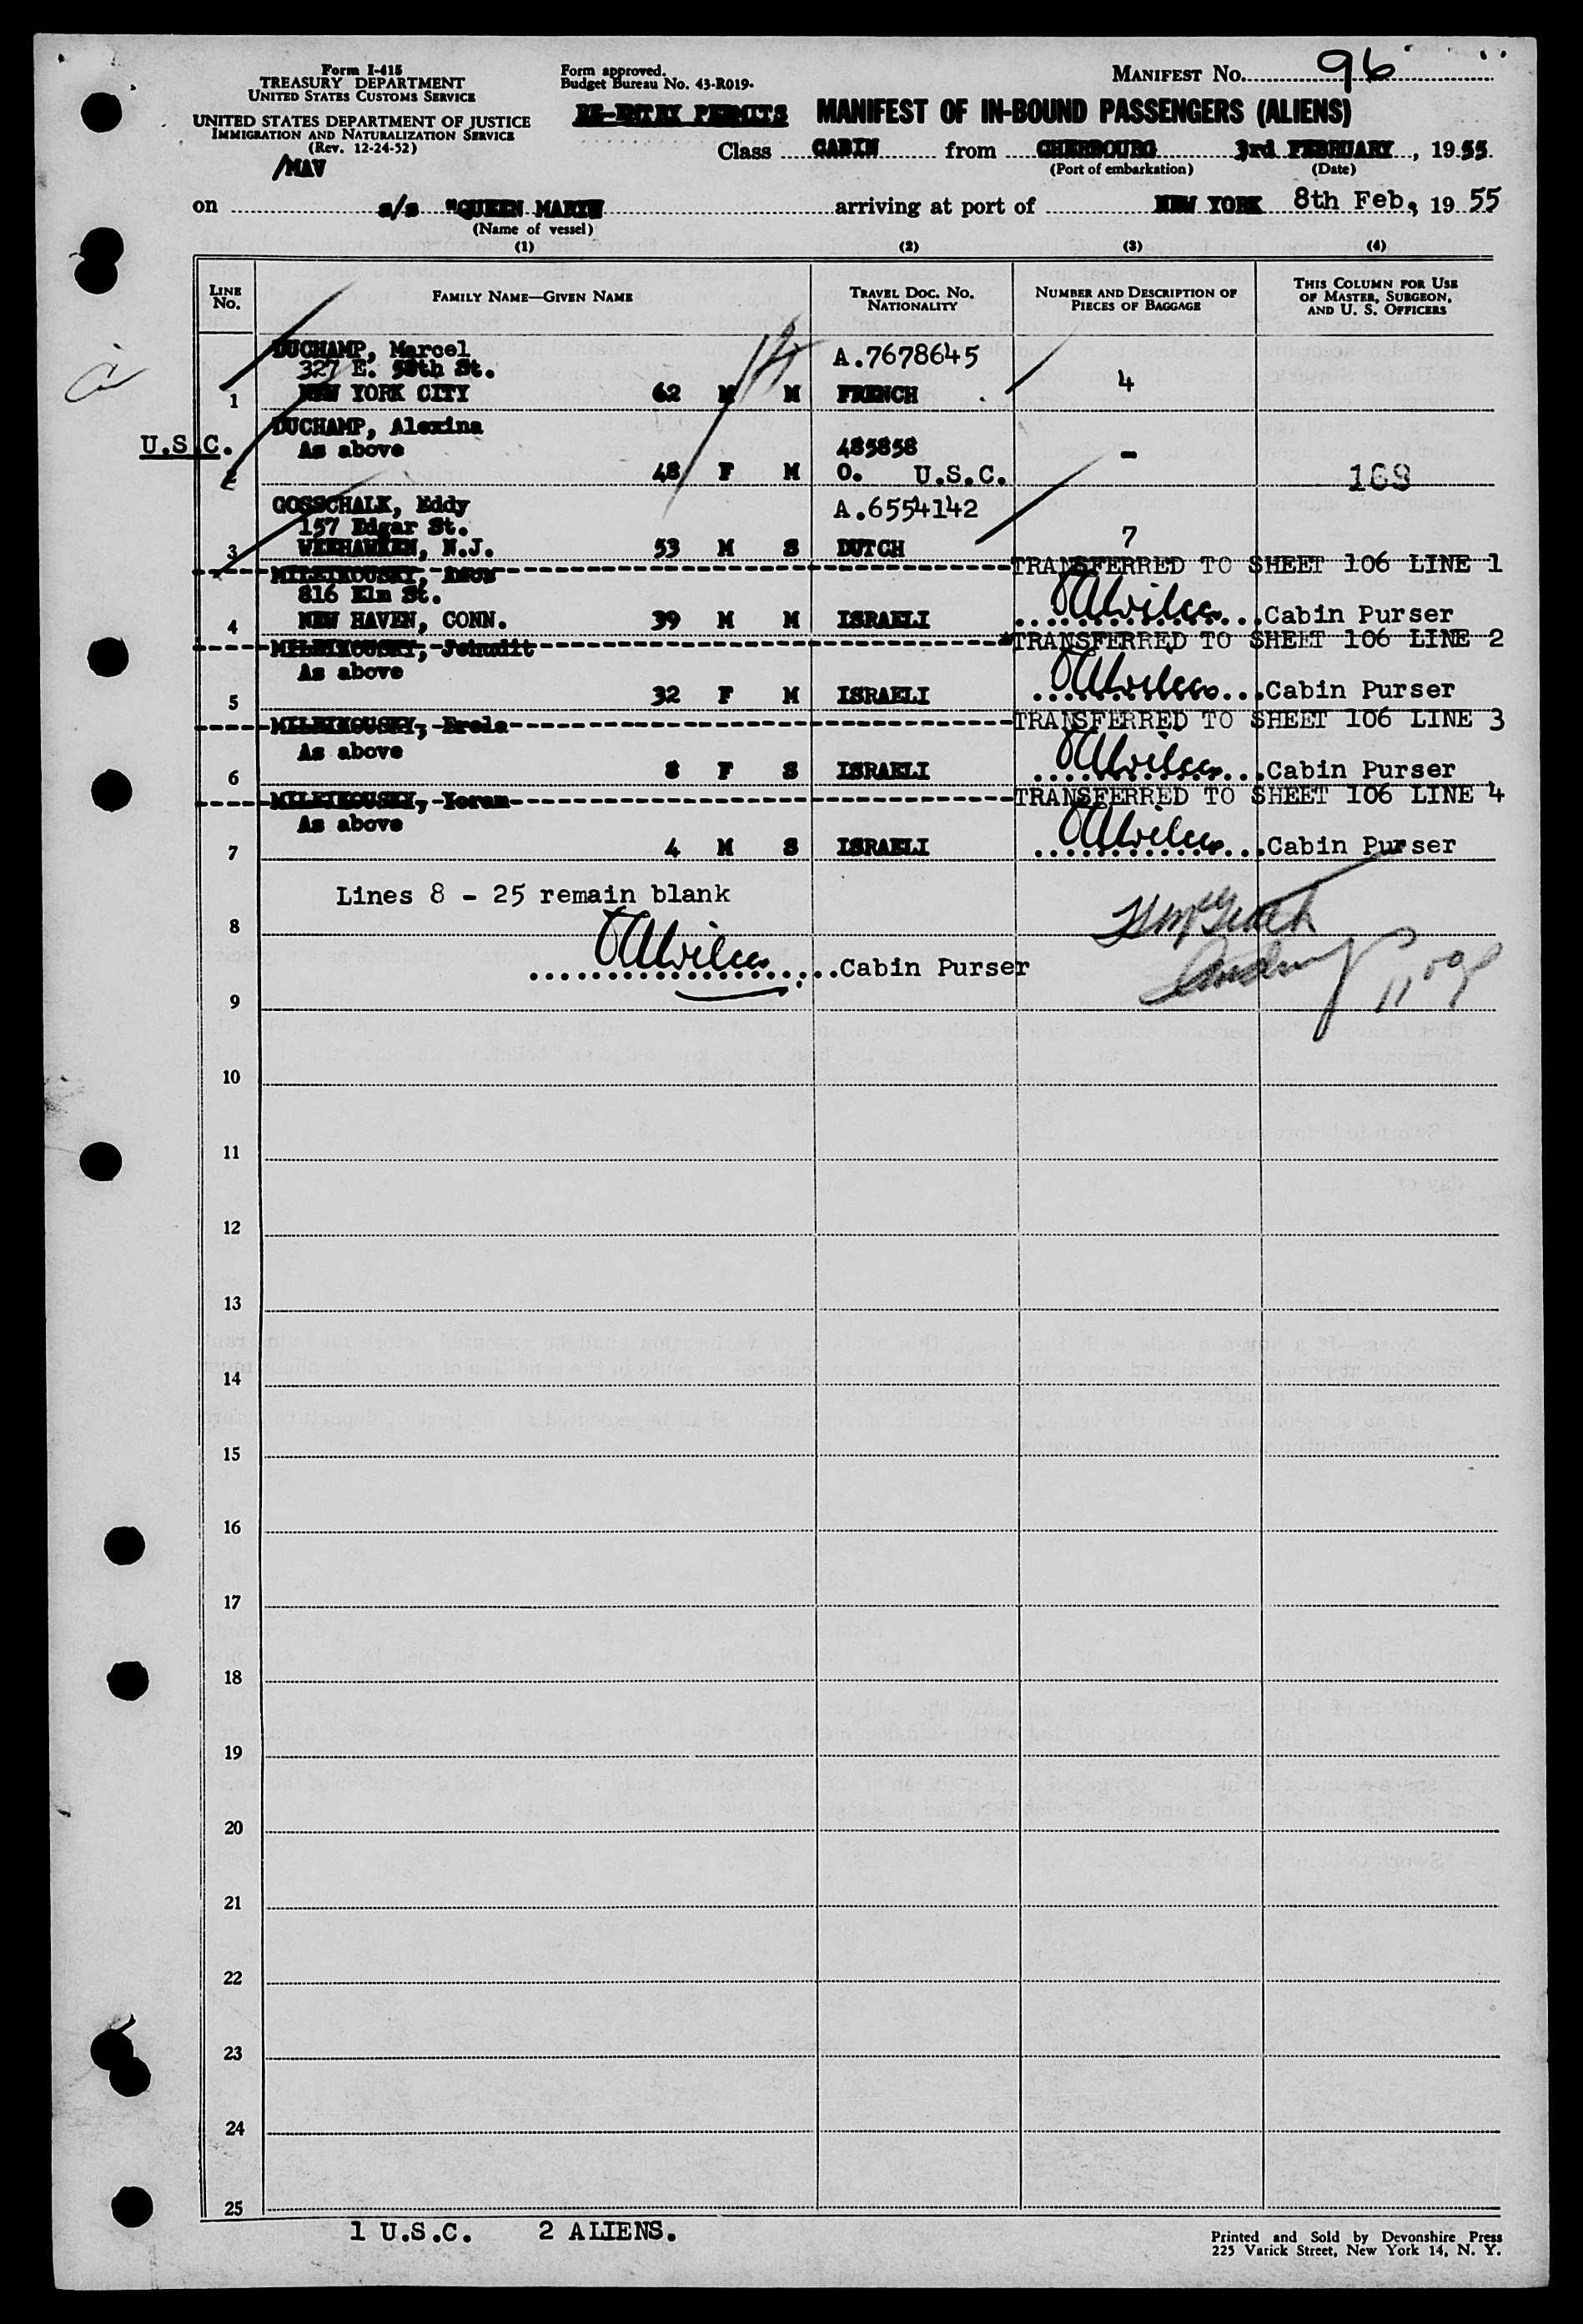 Form I-415
TREASURY DEPARTMENT
UNITED STATES CUSTOMS SERVICE
UNITED STATES DEPARTMENT OF JUSTICE
IMMIGRATION AND NATURALIZATION SERVICE
(Rev. 12-24-52)
/MAV
Form approved.
Budget Bureau No. 43-R019-
MANIFEST No. 96
RE-ENTRY PERMITS MANIFEST OF IN-BOUND PASSENGERS (ALIENS)
Class CABIN from CHERBOURG 3rd FEBRUARY, 1955.
(Port of embarkation) (Date)
on s/s "QUEEN MARY" arriving at port of NEW YORK 8th Feb, 1955
(Name of vessel)
(1) (2) (3) (4)
LINE No. FAMILY NAME—GIVEN NAME TRAVEL DOC. No. NATIONALITY NUMBER AND DESCRIPTION OF PIECES OF BAGGAGE THIS COLUMN FOR USE OF MASTER, SURGEON, AND U. S. OFFICERS
DUCHAMP, Marcel A.7678645
327 E. 58th St.
1 NEW YORK CITY 62 M M FRENCH 4
DUCHAMP, Alexina
U.S.C. As above 485858 -
2 48 F M O. U.S.C. 169
GOSSCHALK, Eddy A.6554142
157 Edgar St.
3 WEEHAWKEN, N.J. 53 M S DUTCH 7
MILEIKOUSKY, TRANSFERRED TO SHEET 106 LINE 1
816 Elm St.
4 NEW HAVEN, CONN. 39 M M ISRAELI Cabin Purser
MILEIKOUSKY, Jeindit TRANSFERRED TO SHEET 106 LINE 2
As above
5 32 F M ISRAELI Cabin Purser
MILEIKOUSKY, Erela TRANSFERRED TO SHEET 106 LINE 3
As above
6 8 F S ISRAELI Cabin Purser
MILEIKOUSKY, Yoram TRANSFERRED TO SHEET 106 LINE 4
As above
7 4 M S ISRAELI Cabin Purser
Lines 8 - 25 remain blank
8
Cabin Purser
9
10
11
12
13
14
15
16
17
18
19
20
21
22
23
24
25
1 U.S.C. 2 ALIENS.
Printed and Sold by Devonshire Press
225 Varick Street, New York 14, N. Y.